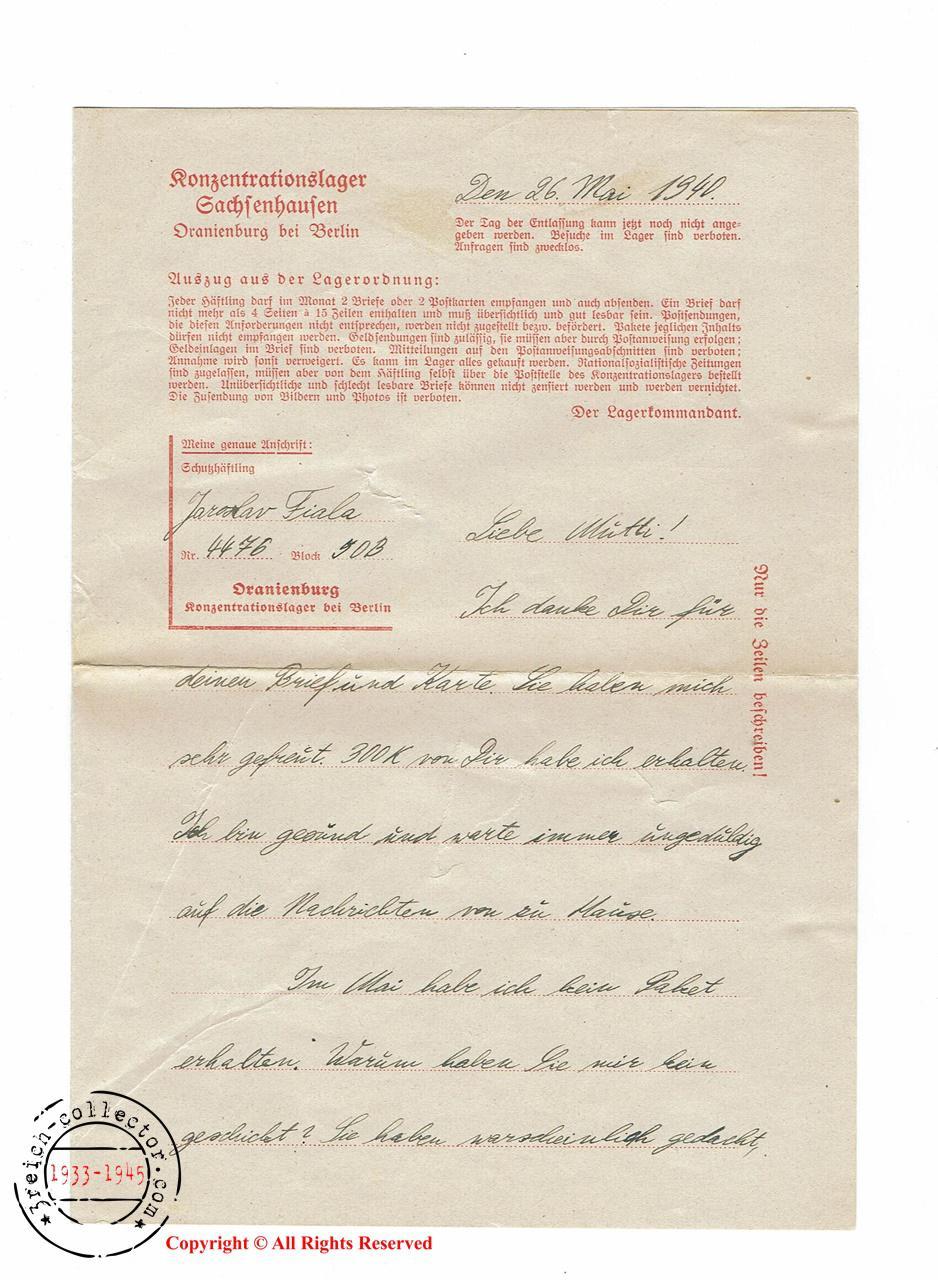 Konzentrationslager
Sachsenhausen
Oranienburg bei Berlin
Den 26. Mai 1940.
Der Tag der Entlassung kann jetzt noch nicht ange-
geben werden. Besuche im Lager sind verboten.
Anfragen sind zwecklos.
Auszug aus der Lagerordnung:
Jeder Häftling darf im Monat 2 Briefe oder 2 Postkarten empfangen und auch absenden. Ein Brief darf
nicht mehr als 4 Seiten à 15 Zeilen enthalten und muß übersichtlich und gut lesbar sein. Postsendungen,
die diesen Anforderungen nicht entsprechen, werden nicht zugestellt bezw. befördert. Pakete jeglichen Inhalts
dürfen nicht empfangen werden. Geldsendungen sind zulässig, sie müssen aber durch Postanweisung erfolgen;
Geldeinlagen im Brief sind verboten. Mitteilungen auf den Postanweisungsabschnitten sind verboten;
Annahme wird sonst verweigert. Es kann im Lager alles gekauft werden. Nationalsozialistische Zeitungen
sind zugelassen, müssen aber von dem Häftling selbst über die Poststelle des Konzentrationslagers bestellt
werden. Unübersichtliche und schlecht lesbare Briefe können nicht zensiert werden und werden vernichtet.
Die Zusendung von Bildern und Photos ist verboten.
Der Lagerkommandant.
Meine genaue Anschrift:
Schutzhäftling
Jaroslav Fiala
Nr. 4476 Block 50B
Oranienburg
Konzentrationslager bei Berlin
Nur die Zeilen beschreiben!
Liebe Mutti!
Ich danke Dir für
deinen Brief und Karte. Sie haben mich
sehr gefreut. 300K von Dir habe ich erhalten.
Ich bin gesund und warte immer ungeduldig
auf die Nachrichten von zu Hause.
Im Mai habe ich kein Paket
erhalten. Warum haben Sie mir kein
geschickt? Sie haben warscheinlich gedacht,
3reich-collector.com
1933-1945
Copyright © All Rights Reserved